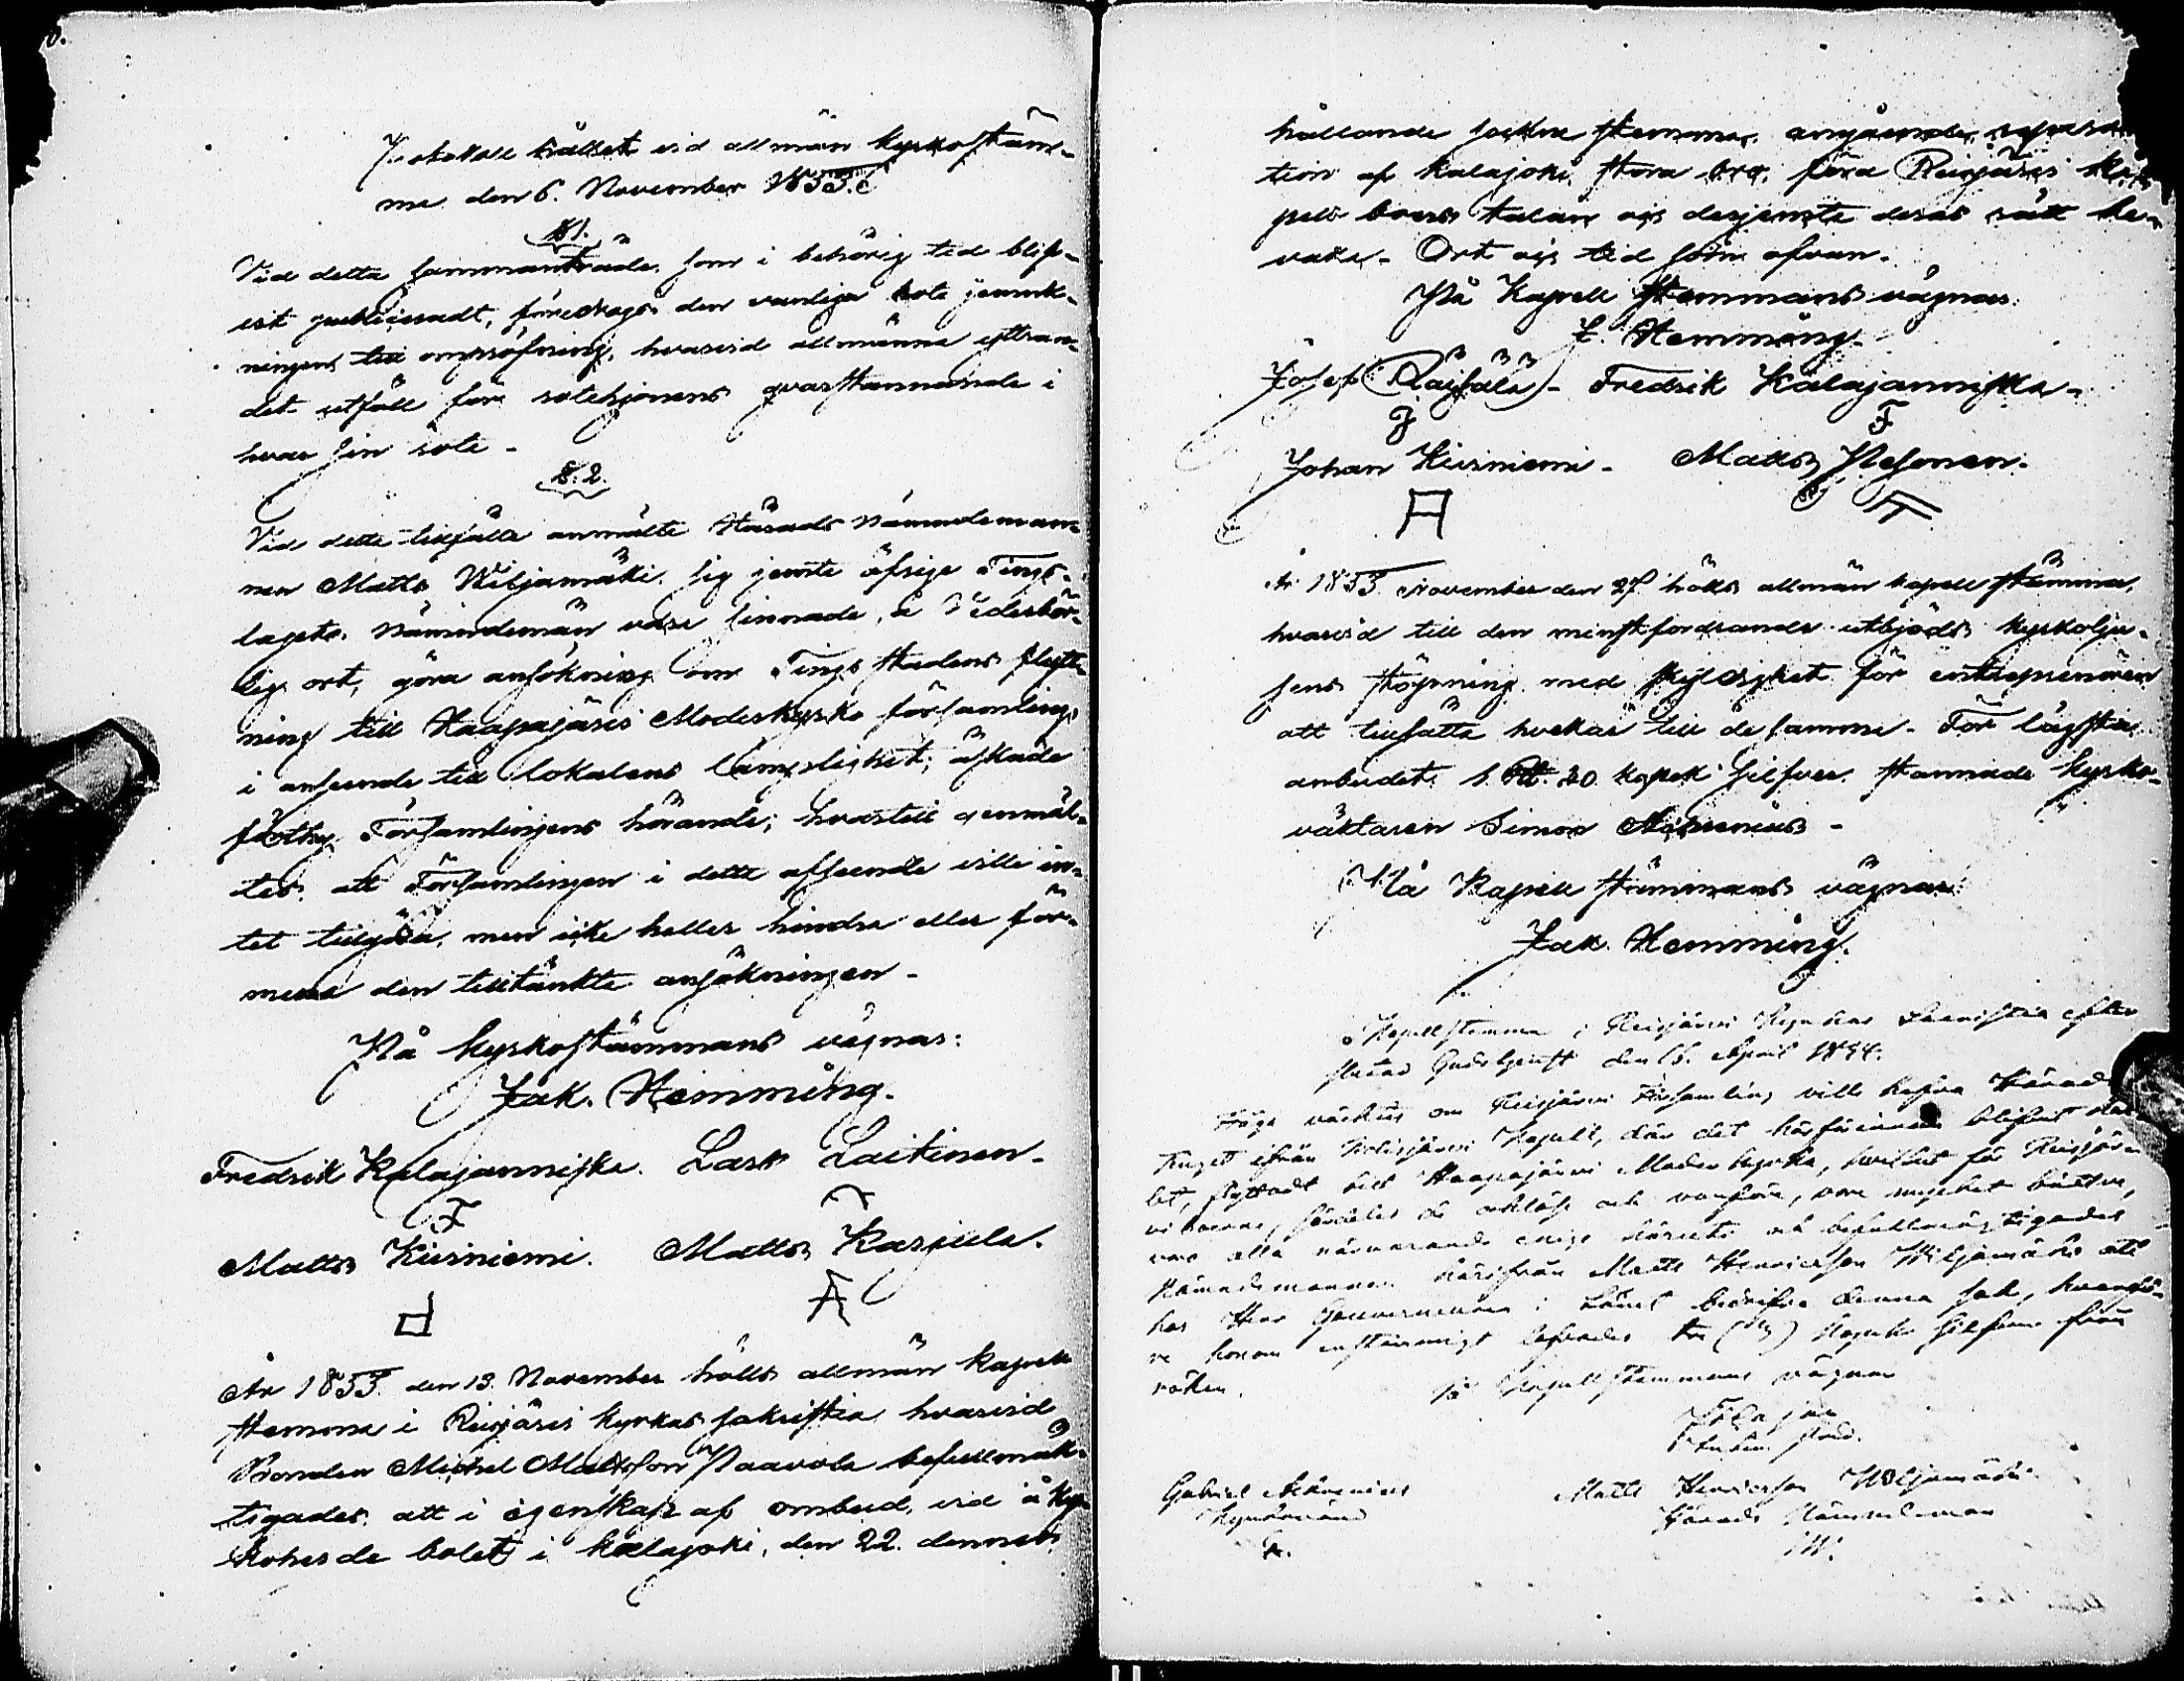 Protokoll hållet vid allmän kyrkostäm-
ma den 6. November 1853.
§ 1.
Vid detta sammanträde, som i behörig tid blif-
vit publiceradt, föredrogs den vanliga rote jemnk-
ningen till ompröfning, hvarvid allmänna yttran-
det utföll för rotehjonens qvarstannande i
hvar sin rote -
§. 2.
Vid detta tillfälle anmälte Härads Nämndeman-
nen Matts Wiljamäki sig jemte öfrige Tings-
lagets Nämndemän vara sinnade, å Vederbör-
lig ort, göra ansökning om Tings stadens flytt-
ning till Haapajärvi Moderkyrko församling
i anseende till lokalens lämplighet; äskade
Församlingens hörande; hvartill genmäl-
tes, att Församlingen i detta afseende ville in-
tet tillgöra, men icke heller hindra eller för-
mena den tilltänkte ansökningen -
På kyrkostämmans vägnar:
Jak. Hemming.
Fredrik Kalajanniska. Lars Laitinen -
F
Matts Kiiniemi. Matts Karjula.
År 1853 den 13. November hölls allmän kapell
stemma i Reisjärvi kyrkas sakristia, hvarvid
Bonden Michel Mattsson Paavola befullmäk-
tigades, att i egenskap af ombud, vid å kyr-
koherde bolet i Kalajoki, den 22. dennes
hållande sockne stemma, angående repara-
tion af Kalajoki stora bro, föra Reisjärvi ka-
pell boers talan och derjemte deras rätt be-
vaka - Ort och tid som ofvan.
På Kapell stemmans vägnar:
J. Hemming.
Josef Räisälä - Fredrik Kalajanniska -
J F
Johan Kiiniemi - Matts Pesonen.
År 1853 November den 27. hölls allmän kapell stämma,
hvarvid till den minstfordrande utbjöds kyrkolju-
sens stöpning med skyldighet för entreprenören
att tillsätta vekar till de samma. För lägsta
anbudet 1. Rb. 20. kopek silfver stannade kyrko-
väktaren Simon
På Kapell stämmans vägnar:
Jak. Hemming.
Kapellstemma i Reisjärvi Kyrkas Sacristia efter
slutad Gudstjenst den 16. April 1854.
Fråga väcktes om Reisjärvi Församling ville hafva Härads
Tinget ifrån Kapell, der det härförinnan blifvit
let, flyttadt till Haapajärvi Moder kyrka, hvilket för Reisjär-
vi boerne, såväl och vore mycket bättre,
vore alla närvarande enige härutj och befullmäktigades
Nämndemannen härifrån Matts Henricsson Wiljamäki att
hos Herr Gouverneuren i Länet bedrifva denna sak, hvarfö-
re honom enstämmigt lofvades tre (3) kopek silfver från
röken.
på Kapellstemmans vägnar
Gabriel
Kyrkovärd
Matts Henricsson Wiljamäki
Härads Nämndeman